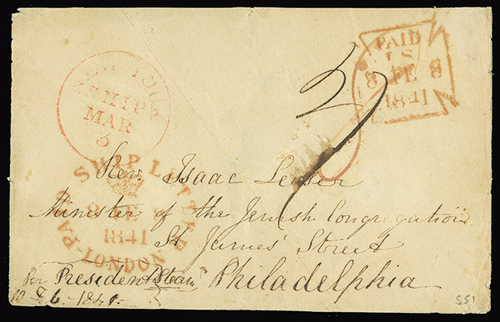 PAID
LS
8 FE 8
1841
NEW YORK
SHIP
MAR
3
SHIP LETTER
8 FE 8
1841
LONDON
2
Rev. Isaac Leeser
Minister of the Jewish Congregation
St. James' Street
Philadelphia
Per President Steam
10 Feb. 1841.
551